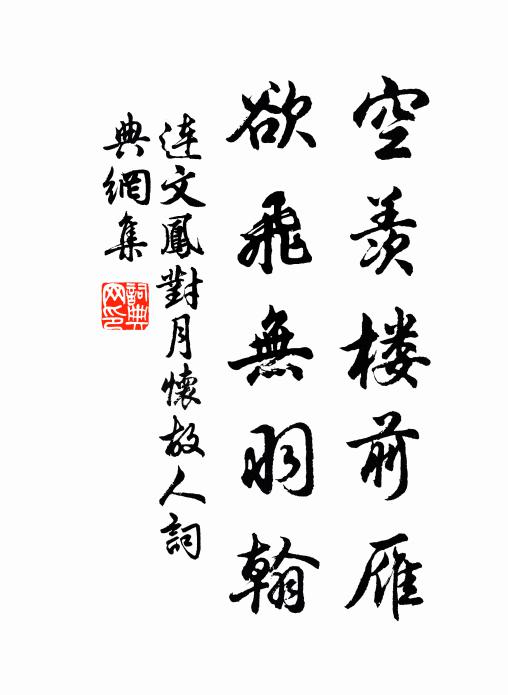 空羨楼前雁
欲飛無羽翰
連文鳳對月懷故人詞
典網集
詞典
网印